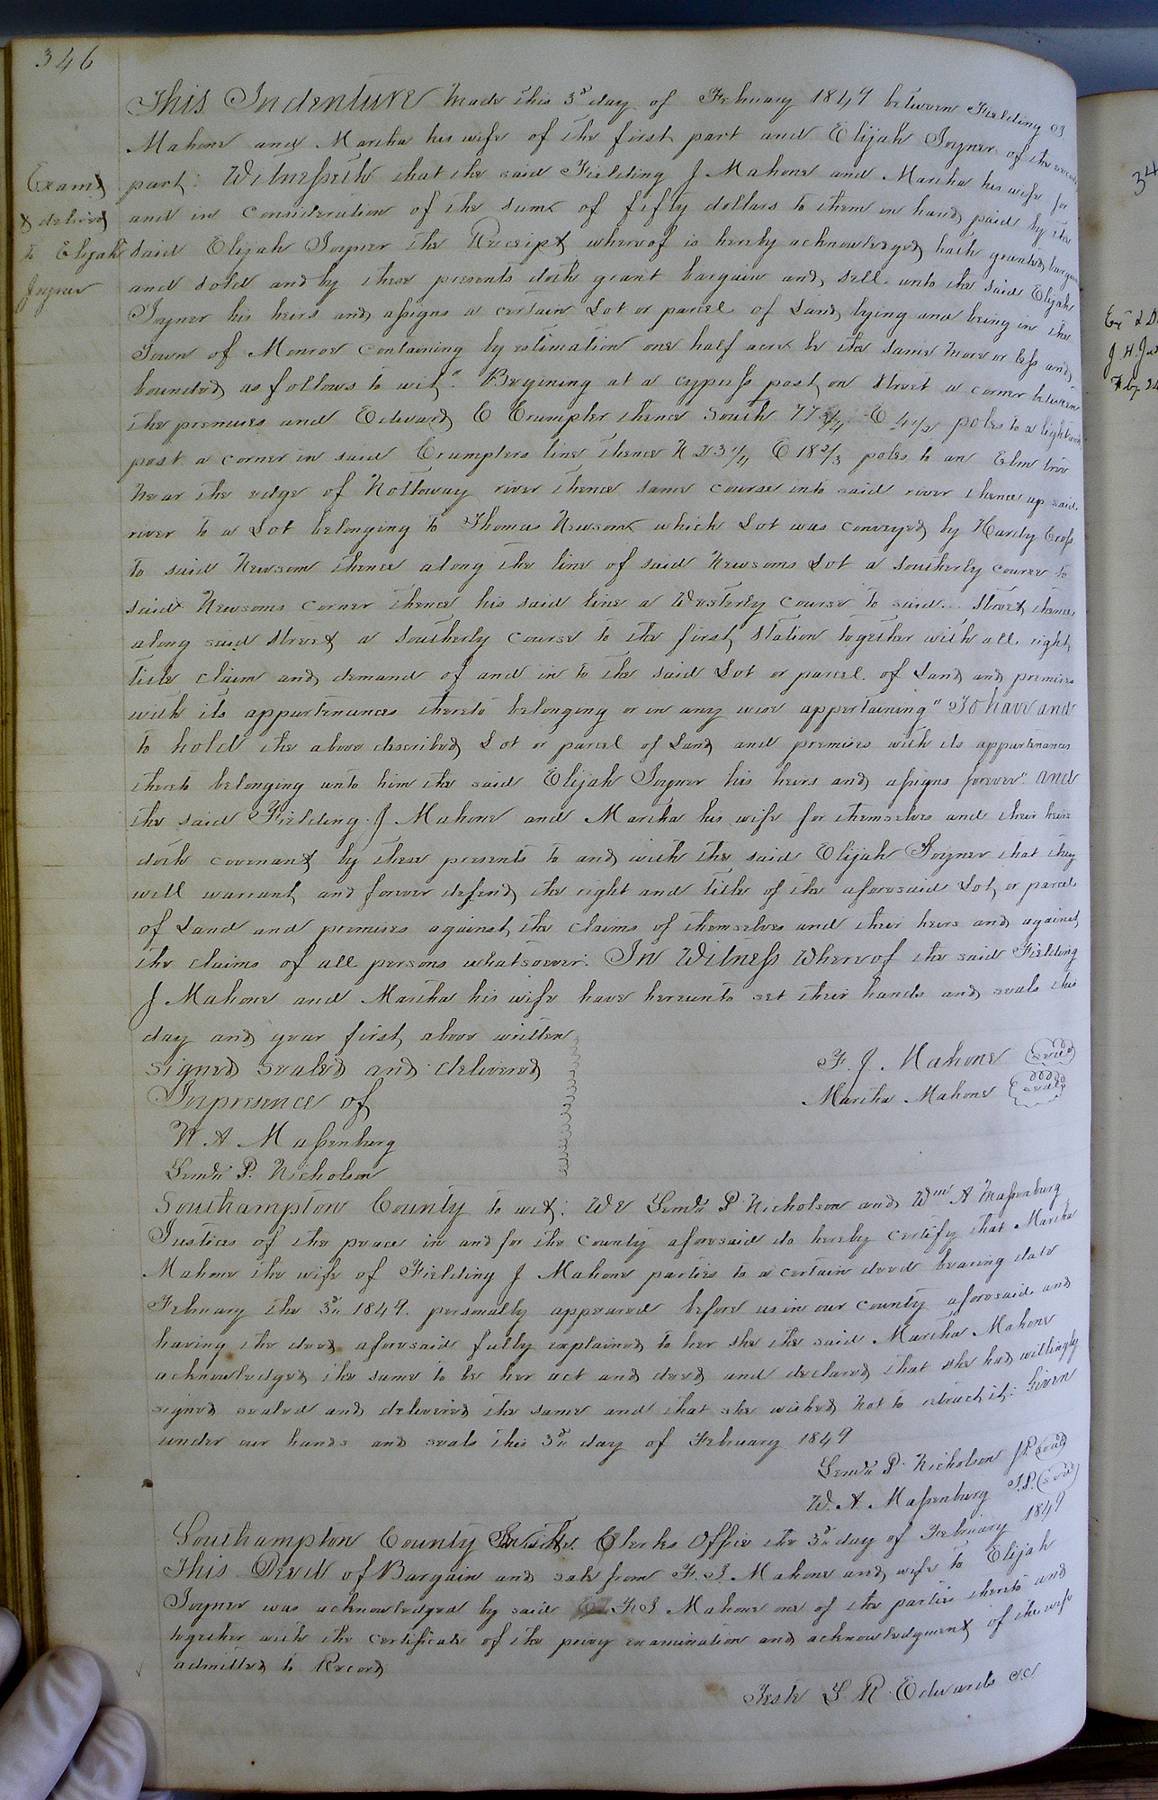 346
This Indenture Made this 3d day of February 1849 between Fielding J
Mahone and Martha his wife of the first part and Elijah Joyner of the second
part: Witnesseth that the said Fielding J Mahone and Martha his wife for
and in Consideration of the sum of fifty dollars to them in hand paid by the
said Elijah Joyner the Receipt whereof is hereby acknowledged hath granted bargain
and sold and by these presents doth grant bargain and sell unto the said Elijah
Joyner his heirs and assigns a certain Lot or parcel of Land lying and being in the
Town of Monroe Containing by estimation one half acre be the same more or less and
bounded as follows to wit: Begining at a cypress post on Street a corner between
the premises and Edward C Crumpler thence South 77 3/4 E 4 1/2 poles to a lightwood
post a corner in said Crumplers line thence N 23 1/4 E 18 2/3 poles to an Elm tree
Near the edge of Nottoway river thence same course into said river thence up said
river to a Lot belonging to Thomas Newsom which Lot was conveyed by Hardy Cross
to said Newsom thence along the line of said Newsoms Lot a Southerly course to
said Newsoms corner thence his said line a Westerly course to said... Street thence
along said Street a Southerly course to the first Station together with all right
title claim and demand of and in to the said Lot or parcel of Land and premises
with its appurtenances thereto belonging or in any wise appertaining" To have and
to hold the above described Lot or parcel of Land and premises with its appurtenances
thereto belonging unto him the said Elijah Joyner his heirs and assigns forever" and
the said Fielding J Mahone and Martha his wife for themselves and their heirs
doth covenant by these presents to and with the said Elijah Joyner that they
will warrant and forever defend the right and title of the aforesaid Lot or parcel
of Land and premises against the claims of themselves and their heirs and against
the claims of all persons whatsoever. In Witness Whereof the said Fielding
J Mahone and Martha his wife have hereunto set their hands and seals this
day and year first above written
signed sealed and delivered
In presence of
W A Massenburg
Lemu P. Nicholson
F. J. Mahone (seal)
Martha Mahone (seal)
Southampton County to wit: We Lemu P Nicholson and Wm A Massenburg
Justices of the peace in and for the County aforesaid do hereby certify that Martha
Mahone the wife of Fielding J Mahone parties to a certain deed bearing date
February the 3d 1849. personally appeared before us in our County aforesaid and
having the deed aforesaid fully explained to her she the said Martha Mahone
acknowledged the same to be her act and deed and declared that she had willingly
signed sealed and delivered the same and that she wished not to retract it: Given
under our hands and seals this 3d day of February 1849
Lemu P. Nicholson J.P. (seal)
W. A. Massenburg J.P. (seal)
Southampton County In the Clerks Office the 3d day of February 1849
This Deed of Bargain and sale from F. J. Mahone and wife to Elijah
Joyner was acknowledged by said F J Mahone one of the parties thereto and
together with the certificate of the privy examination and acknowledgment of the wife
admitted to Record
Teste L R Edwards CC
Examd
& delived
to Elijah
Joyner